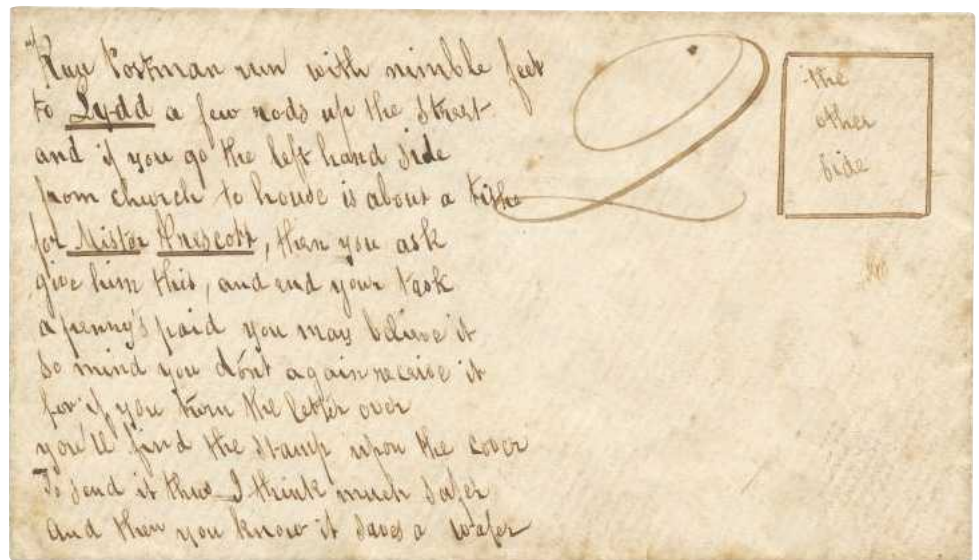 "Run Postman run with nimble feet
to Lydd a few rods up the Street
and if you go the left hand side
from church to house is about a tithe
for Mister Prescott, then you ask
give him this, and end your task
a penny's paid you may believe it
so mind you don't again receive it
for if you turn the letter over
you'll find the stamp upon the cover
To send it thus I think much safer
and then you know it saves a wafer
2
the
other
side